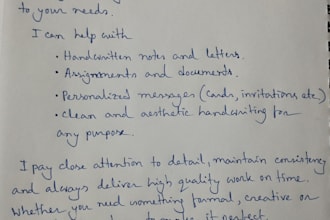 to your needs.
I can help with
• Handwritten notes and letters.
• Assignments and documents.
• Personalized messages (cards, invitations, etc)
• clean and aesthetic handwriting for
any purpose.
I pay close attention to detail, maintain consistency
and always deliver high quality work on time.
Whether you need something formal, creative or